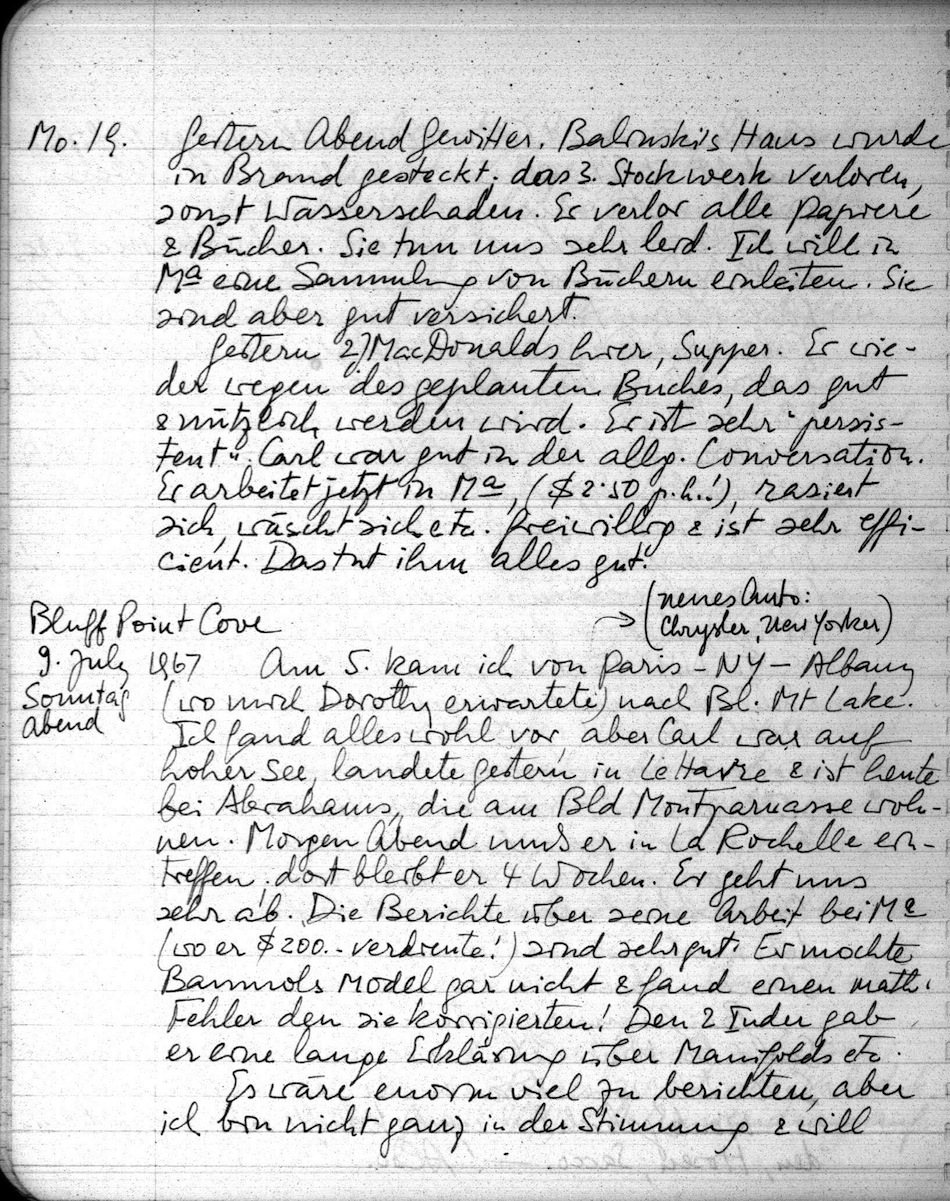 Mo. 19. Gestern Abend Gewitter. Balinski's Haus wurde
in Brand gesteckt; das 3. Stockwerk verloren,
sonst Wasserschaden. Er verlor alle Papiere
& Bücher. Sie tun uns sehr leid. Ich will in
Ma eine Sammlung von Büchern einleiten. Sie
sind aber gut versichert.
Gestern 2) MacDonalds hier, Supper. Er wie-
der wegen des geplanten Buches, das gut
& nützlich werden wird. Er ist sehr "persis-
tent". Carl war gut in der allg. Conversation.
Er arbeitet jetzt in Ma, ($ 2.50 p.h.!), rasiert
sich, wäscht sich etc. freiwillig & ist sehr effi-
cient. Das tut ihm alles gut.
→ (neues Auto:
Bluff Point Cove Chrysler, New Yorker)
9. July 1967 Am 5. kam ich von Paris - NY - Albany
Sonntag (wo mich Dorothy erwartete) nach Bl. Mt Lake.
Abend Ich fand alles wohl vor, aber Carl war auf
hoher See, landete gestern in Le Havre & ist heute
bei Abrahams, die am Bld Montparnasse woh-
nen. Morgen Abend muß er in La Rochelle ein-
treffen; dort bleibt er 4 Wochen. Er geht uns
sehr ab. Die Berichte über seine Arbeit bei Ma
(wo er $ 200.- verdiente!) sind sehr gut. Er mochte
Baumols Model gar nicht & fand einen math.
Fehler den sie korrigierten! Den 2 Inder gab
er eine lange Erklärung über Manifolds etc.
Es wäre enorm viel zu berichten, aber
ich bin nicht ganz in der Stimmung & will